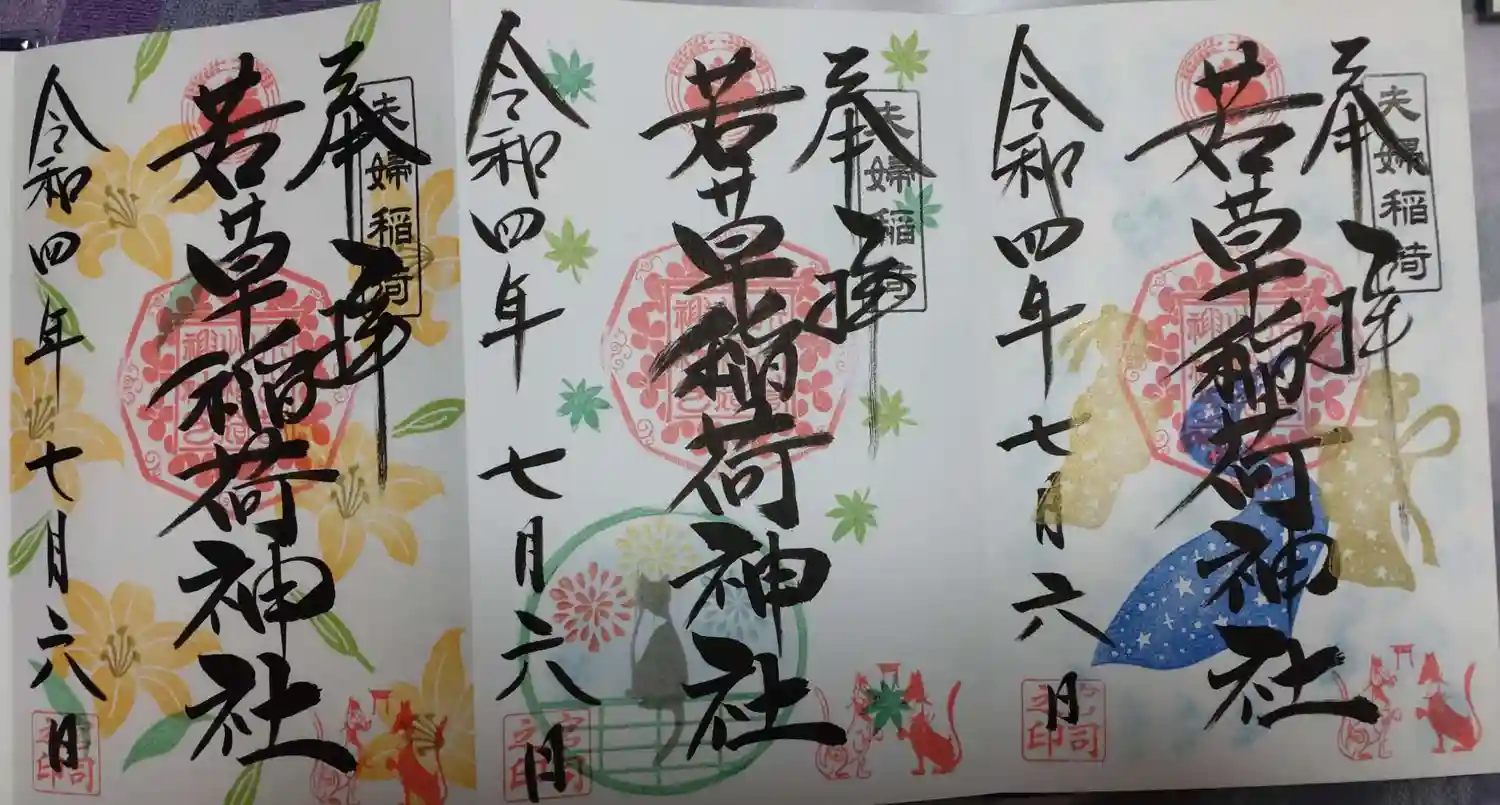 奉拝
夫婦稲荷
若草稲荷神社
令和四年七月六日
宮司之印
奉拝
夫婦稲荷
若草稲荷神社
令和四年七月六日
宮司之印
奉拝
夫婦稲荷
若草稲荷神社
令和四年七月六日
宮司之印